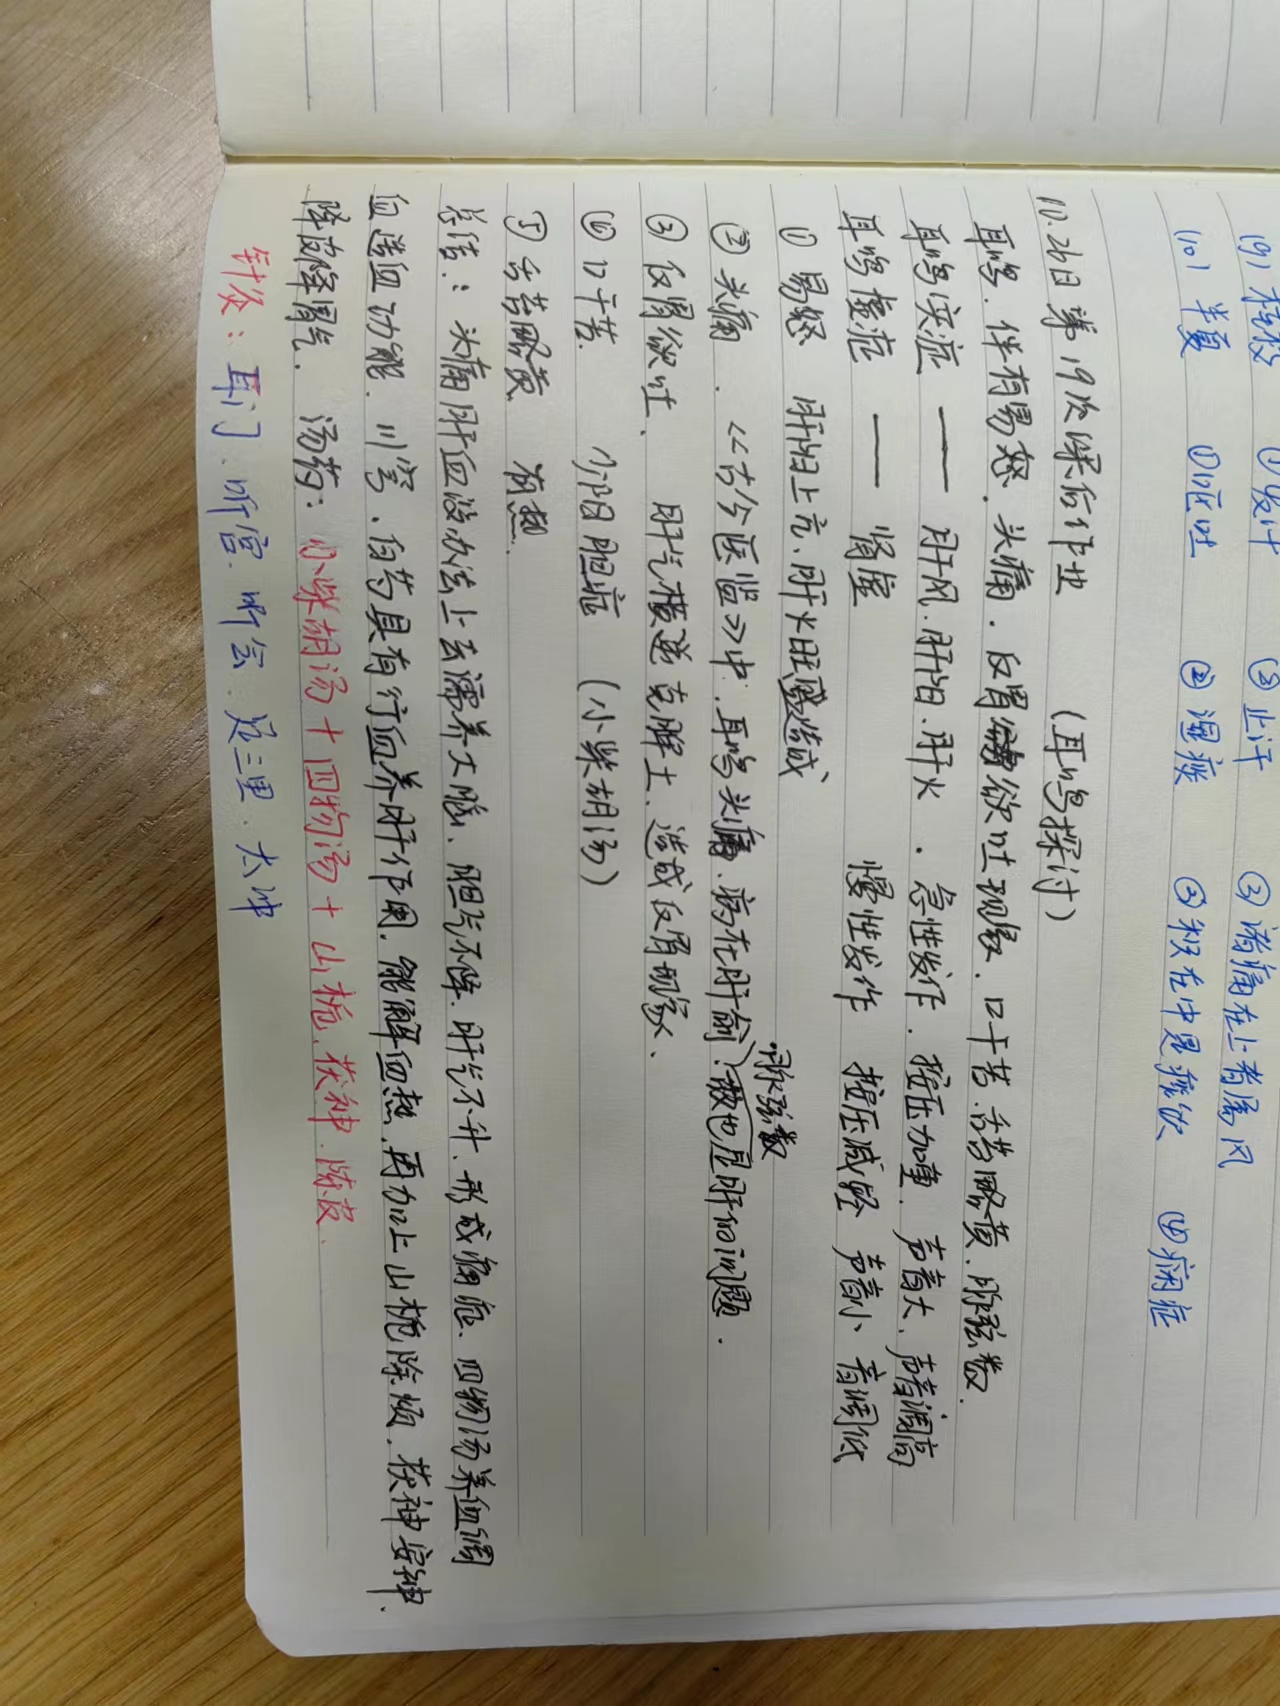 (9) 桂枝 ①发汗 ②止汗 ③诸痛在上者属风
(10) 半夏 ①呕吐 ②湿痰 ③积在中是痰饮 ④痫症
10.26日第19次课后作业 (耳鸣探讨)
耳鸣、伴有易怒、头痛、反胃欲吐现象、口干苦、舌苔略黄、脉弦数.
耳鸣实症 —— 肝风.肝阳.肝火、急性发作、按压加重、声音大、声音调高
耳鸣虚症 —— 肾虚 慢性发作 按压减轻 声音小 音调低
① 易怒 肝阳上亢、肝火旺盛造成
脉弦数
② 头痛、《古今医监》中、耳鸣头痛、病在肝俞、故也是肝的问题.
③ 反胃欲吐、 肝气横逆克脾土、造成反胃现象、
④ 口干苦. 少阳胆症 (小柴胡汤)
⑤ 舌苔略黄 有热.
总结: 头痛肝血没办法上去濡养大脑、胆气不降、肝气不升、形成痛症、四物汤养血调
血造血功能. 川窍、白芍具有行血养肝作用、能解血热、再加上山栀除烦、茯神安神、
陈皮降胃气、 汤药: 小柴胡汤+四物汤+山栀、茯神、陈皮.
针灸: 耳门、听宫、听会、足三里、太冲